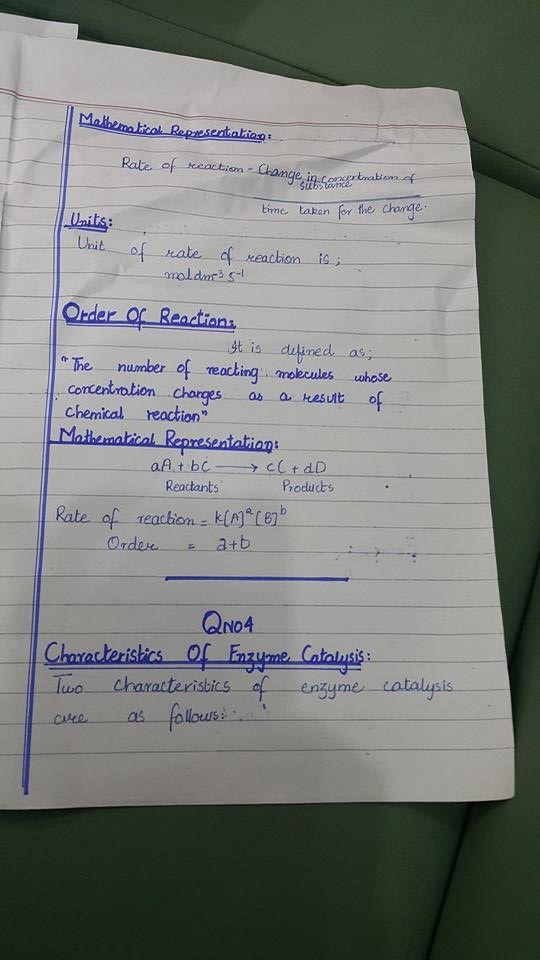 Mathematical Representation:
Rate of reaction = Change in concentration of
substance
time taken for the change.
Units:
Unit of rate of reaction is;
moldm⁻³ s⁻¹
Order Of Reaction:
It is defined as;
"The number of reacting molecules whose
concentration changes as a result of
Chemical reaction"
Mathematical Representation:
aA + bC ⟶ cC + dD
Reactants Products
Rate of reaction = K[A]ᵃ[B]ᵇ
Order = a+b
QNO4
Characteristics Of Enzyme Catalysis:
Two characteristics of enzyme catalysis
are as follows: